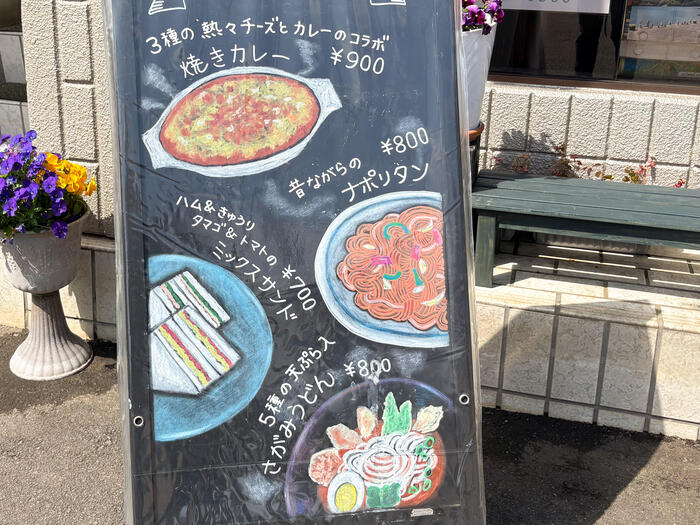 3種の熱々チーズとカレーのコラボ
焼きカレー ¥900
¥800
昔ながらの
ナポリタン
ハム&きゅうり
タマゴ&トマトの
ミックスサンド
¥700
5種の天ぷら入
さがみうどん
¥800